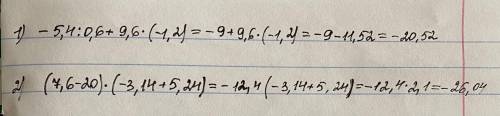 1) -5,4:0,6+9,6·(-1,2)=-9+9,6·(-1,2)=-9-11,52=-20,52
2) (7,6-20)·(-3,14+5,24)=-12,4(-3,14+5,24)=-12,4·2,1=-26,04